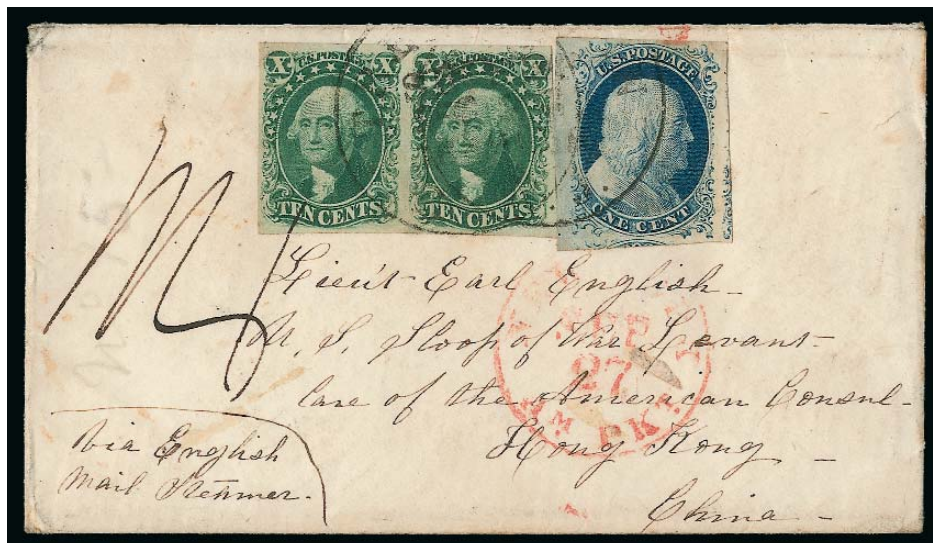 X U.S. POSTAGE X
TEN CENTS
X U.S. POSTAGE X
TEN CENTS
U.S. POSTAGE
ONE CENT
Lieut Earl English
U. S. Sloop of War Levant
Care of the American Consul
Hong Kong
China
Via English
Mail Steamer.
27
AM. PKT.